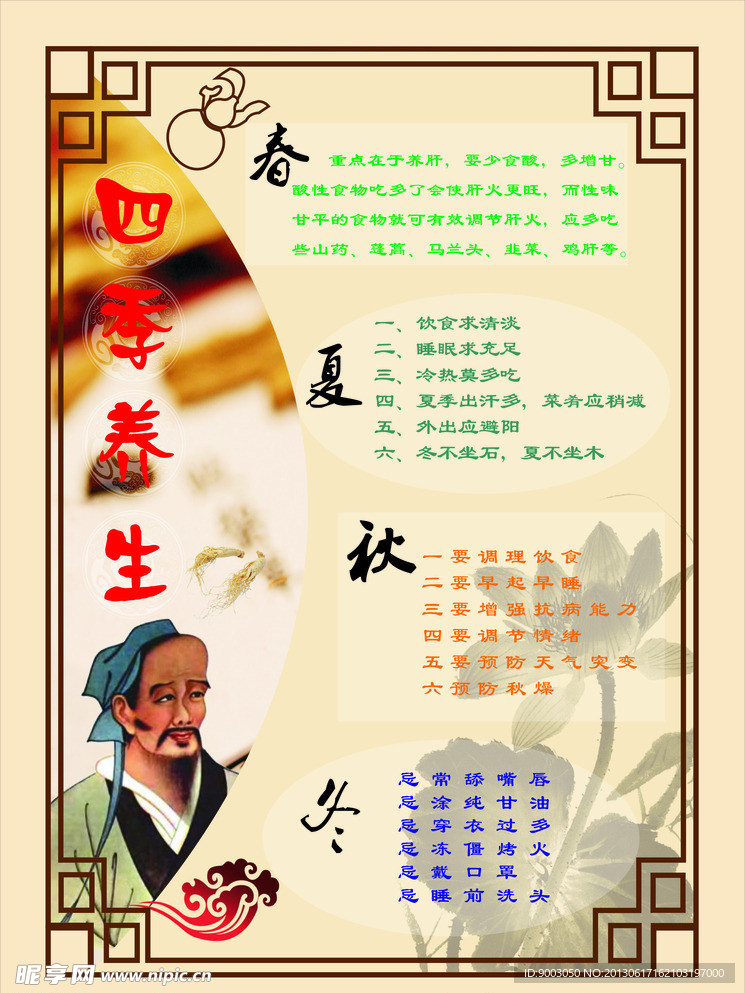 四季养生
春
重点在于养肝，要少食酸，多增甘。
酸性食物吃多了会使肝火更旺，而性味
甘平的食物就可有效调节肝火，应多吃
些山药、蓬蒿、马兰头、韭菜、鸡肝等。
夏
一、饮食求清淡
二、睡眠求充足
三、冷热莫多吃
四、夏季出汗多，菜肴应稍减
五、外出应避阳
六、冬不坐石，夏不坐木
秋
一要调理饮食
二要早起早睡
三要增强抗病能力
四要调节情绪
五要预防天气突变
六预防秋燥
冬
忌常舔嘴唇
忌涂纯甘油
忌穿衣过多
忌冻僵烤火
忌戴口罩
忌睡前洗头
昵享网 www.nipic.cn
ID:9003050 NO:20130617162103197000